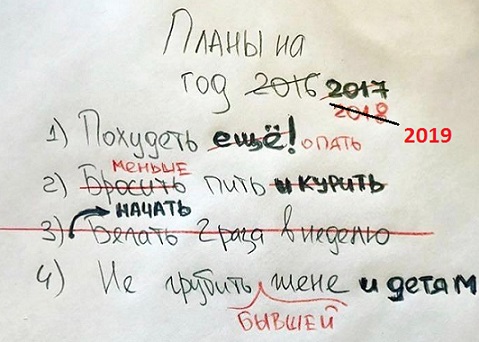 Планы на
год 2016 2017
2018 2019
1) Похудеть ещё! опять
меньше
2) Бросить пить и курить
начать
3) Бегать 2 раза в неделю
4) Не грубить жене и детям
бывшей